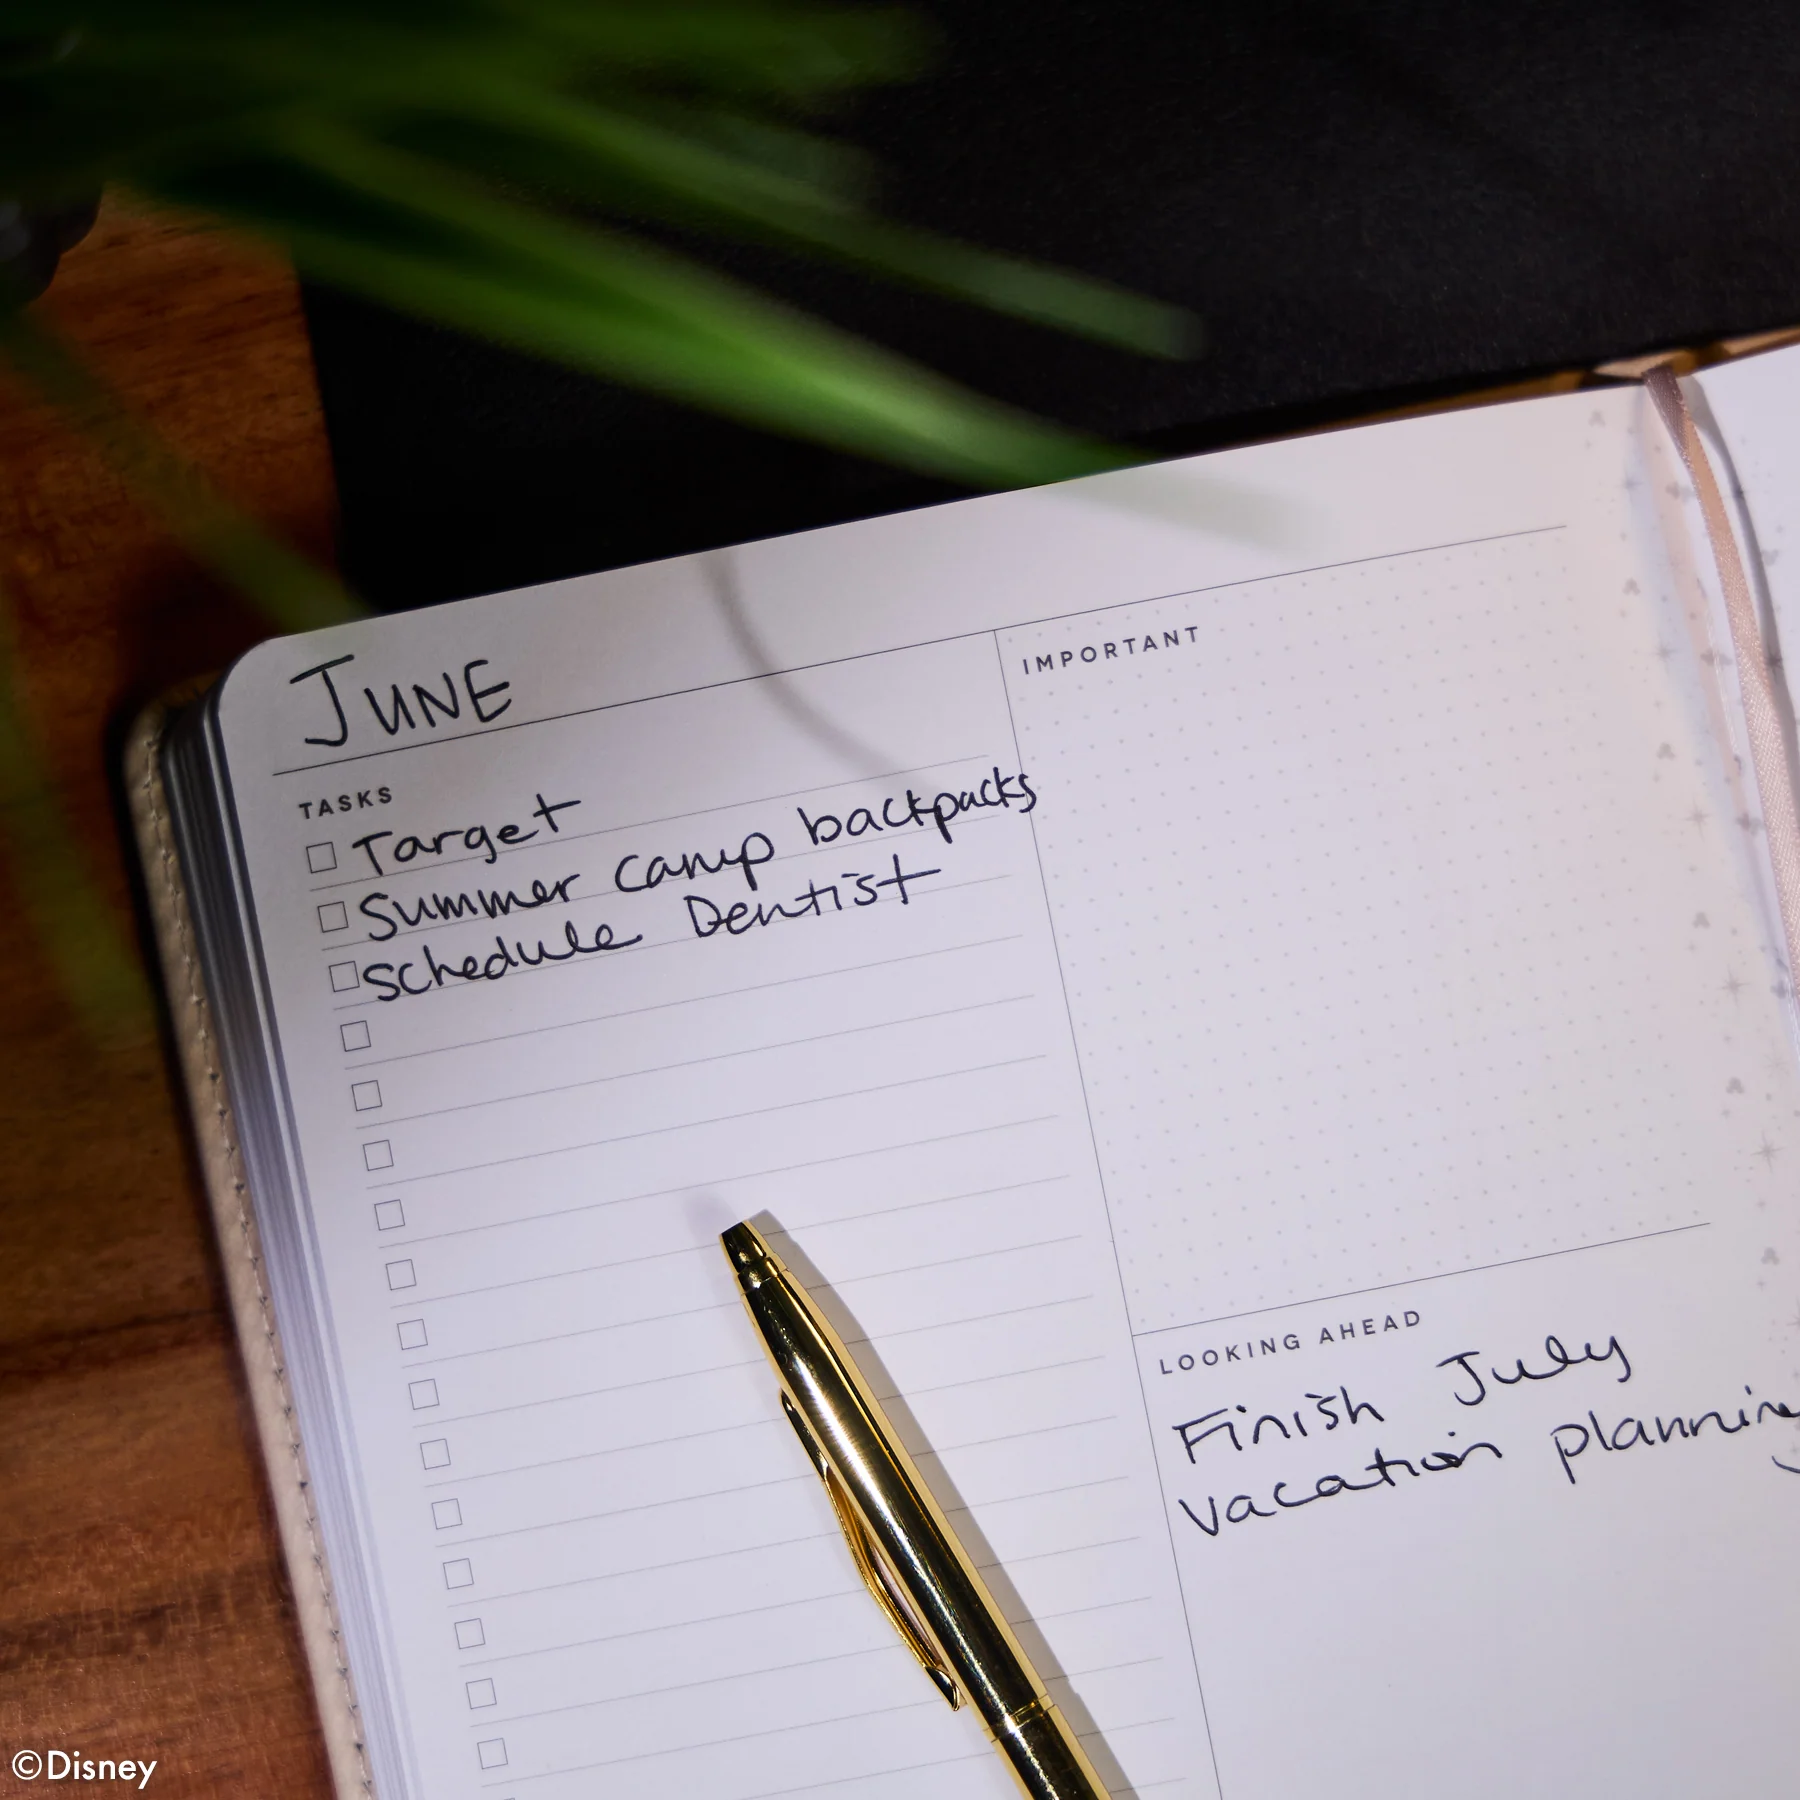 JUNE
TASKS
Target
Summer camp backpacks
Schedule Dentist
IMPORTANT
LOOKING AHEAD
Finish July
vacation planning
©Disney